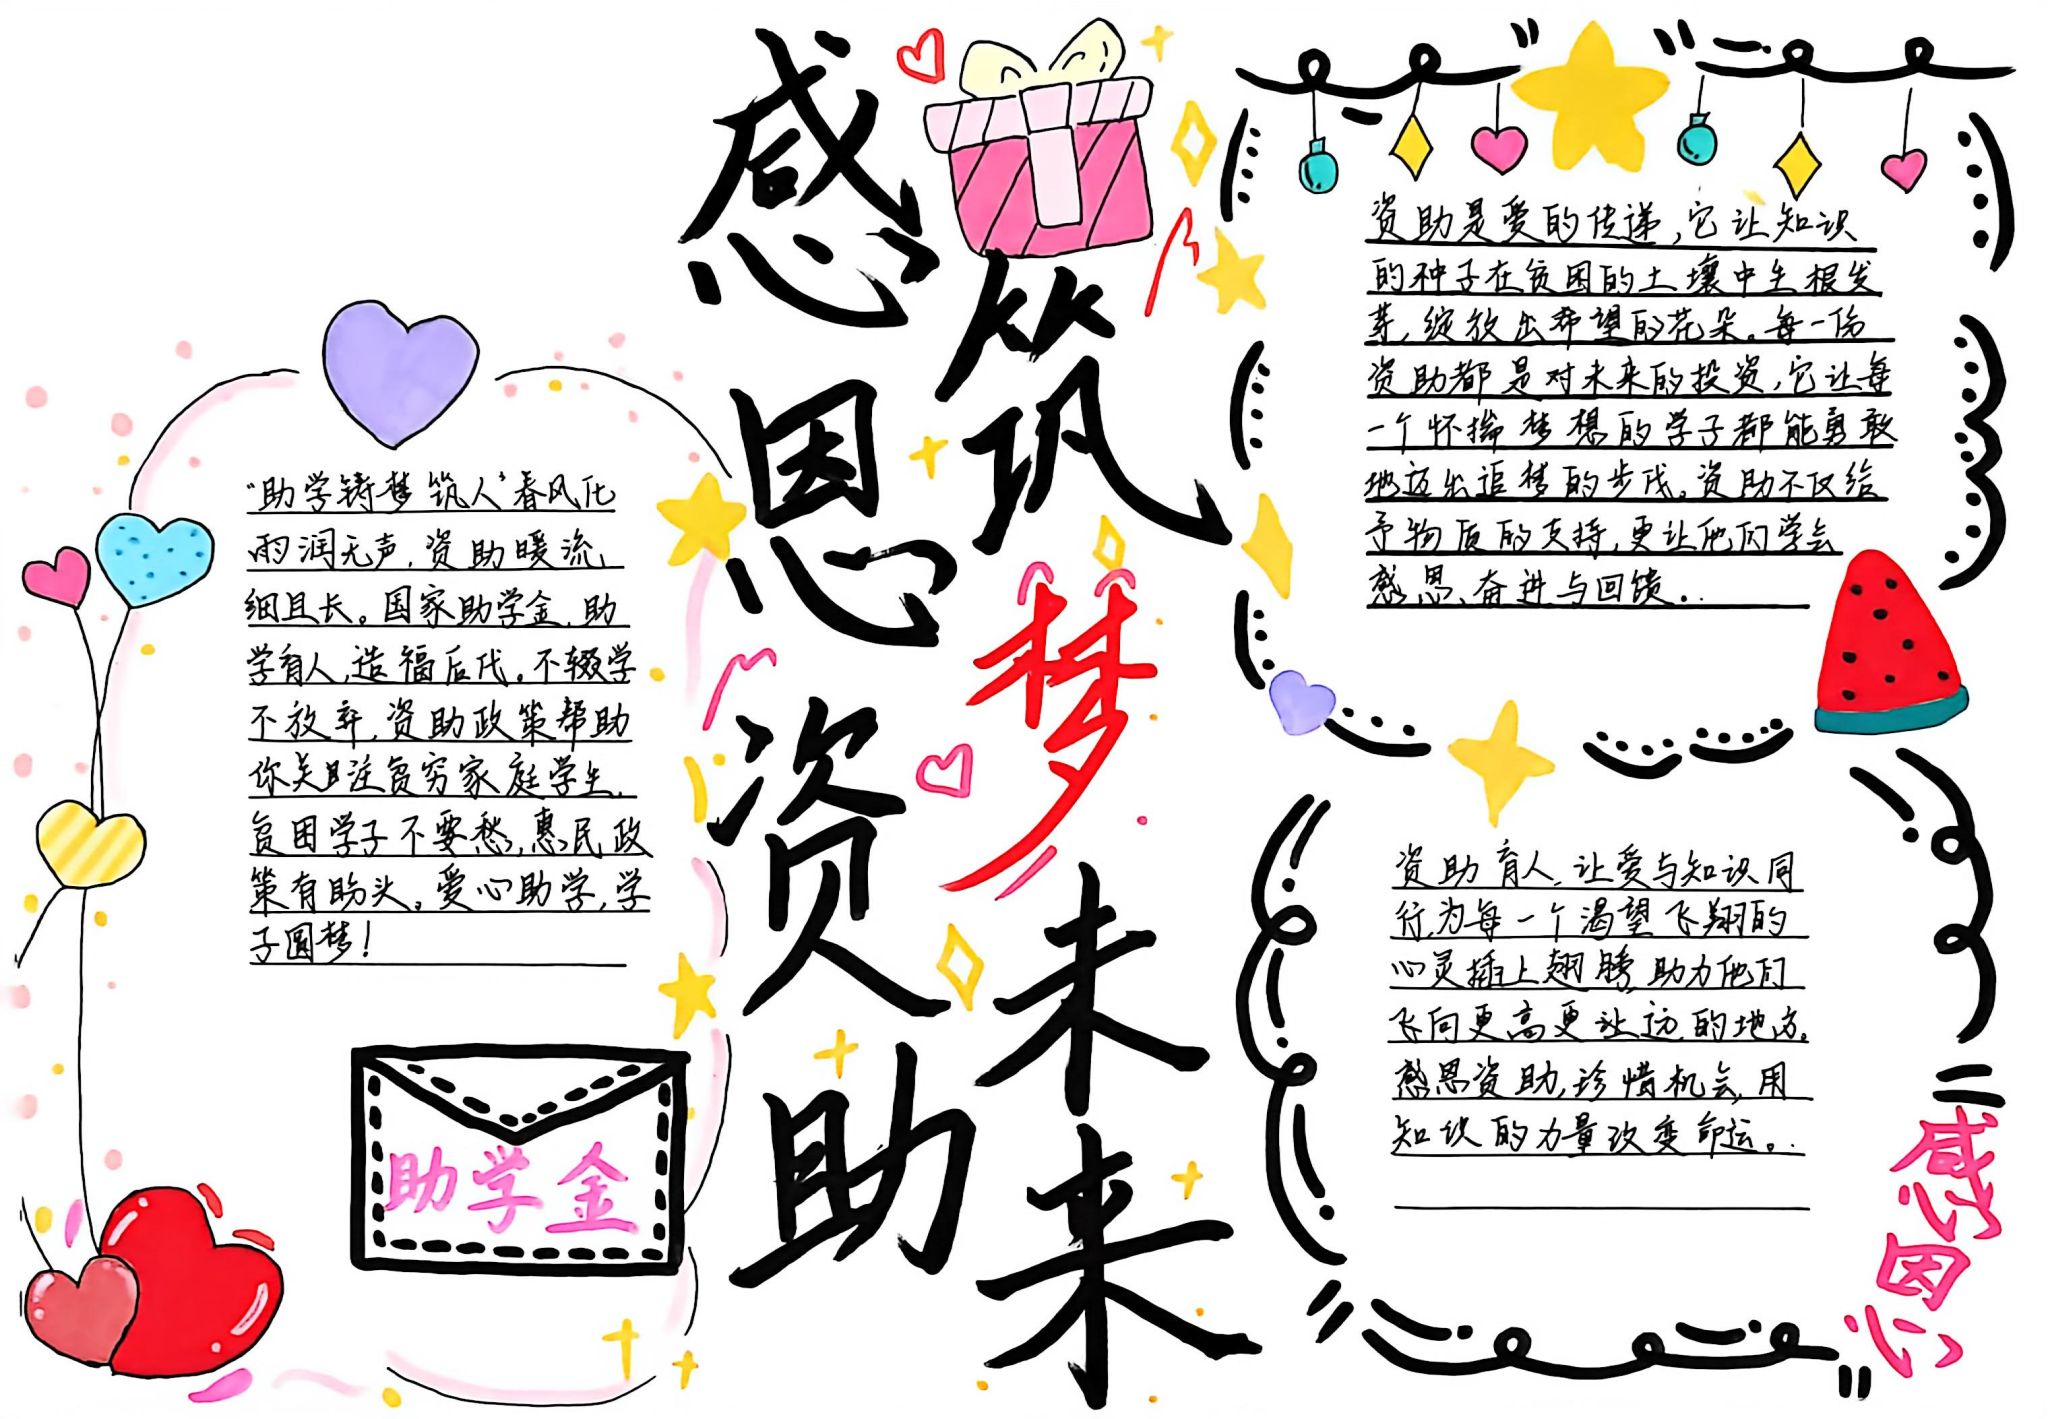 感恩资助
筑梦未来
"助学铸梦筑人"春风化
雨润无声,资助暖流,
细且长。国家助学金,助
学育人,造福后代。不辍学
不放弃,资助政策帮助
你关注贫穷家庭学生,
贫困学子不要愁,惠民政
策有盼头。爱心助学,学
子圆梦!
助学金
资助是爱的传递,它让知识
的种子在贫困的土壤中生根发
芽,绽放出希望的花朵。每一份
资助都是对未来的投资,它让每
一个怀揣梦想的学子都能勇敢
地迈出追梦的步伐。资助不仅给
予物质的支持,更让他们学会
感恩、奋进与回馈..
资助育人,让爱与知识同
行,为每一个渴望飞翔的
心灵插上翅膀,助力他们
飞向更高更让远的地方。
感恩资助,珍惜机会,用
知识的力量改变命运。.
感恩